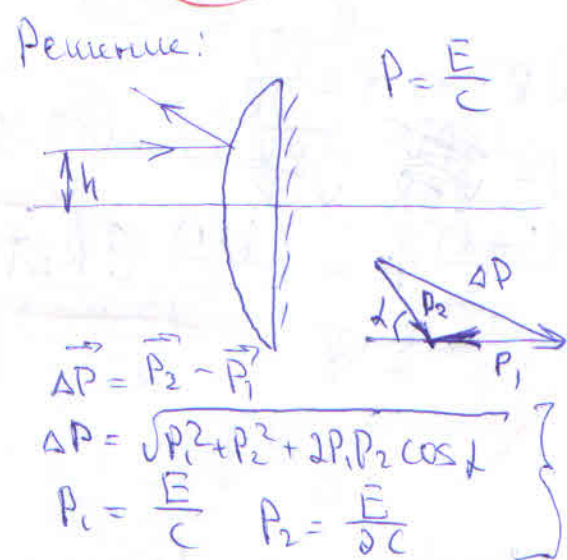 Решение:
P = E/C
h
ΔP
P₂
α
P₁
ΔP⃗ = P⃗₂ - P⃗₁
ΔP = √(P₁² + P₂² + 2P₁P₂ cos α)
P₁ = E/C P₂ = E/2C